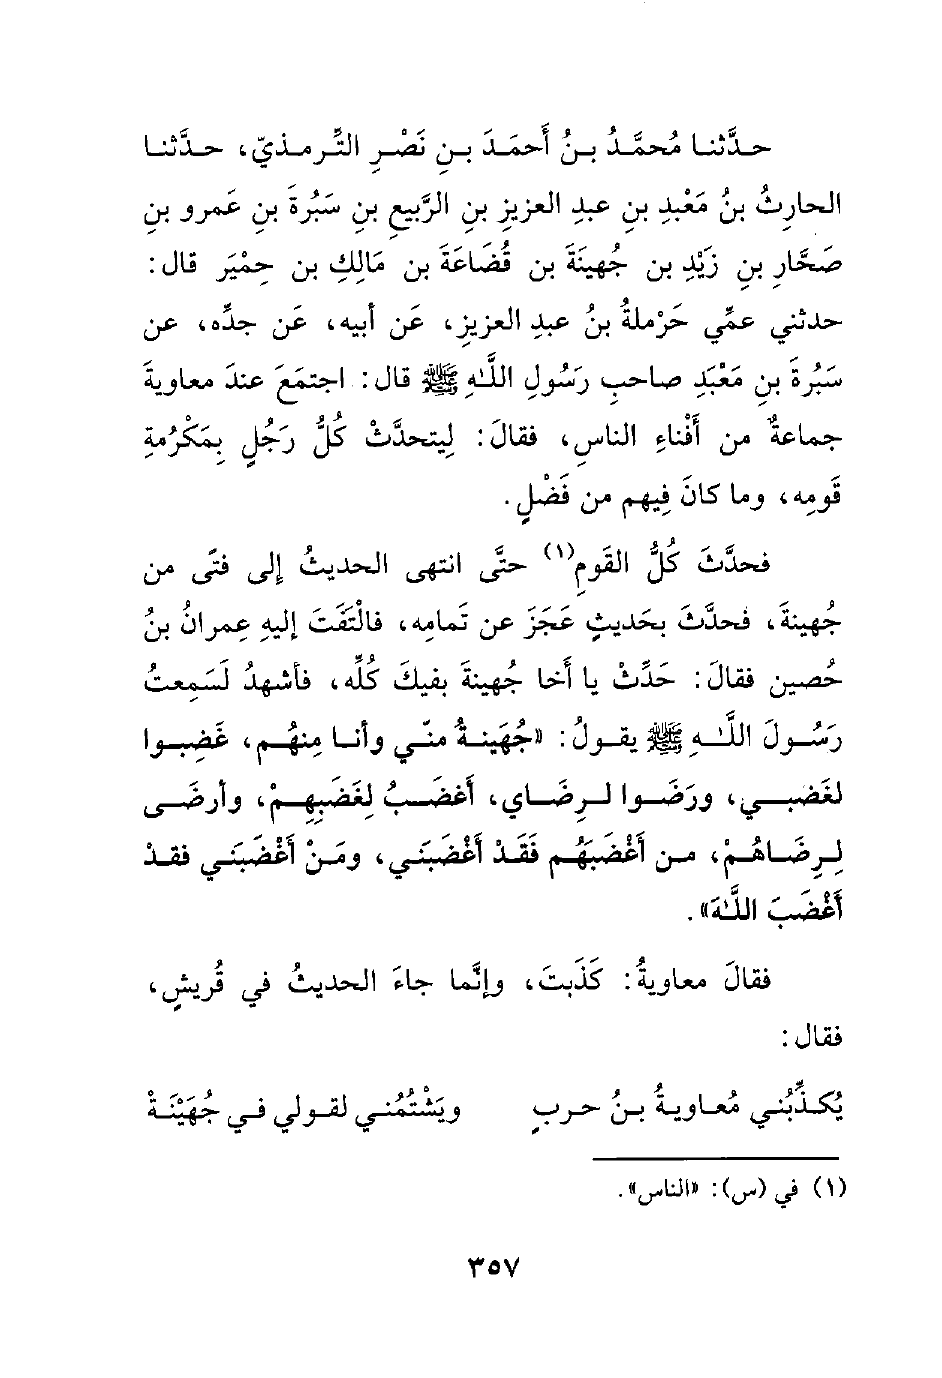 حـدَّثنـا مُحمَّـدُ بـنُ أَحمَـدَ بـنِ نَصْـرِ التِّرمـذيّ، حـدَّثنـا
الحارِثُ بنُ مَعْبدِ بنِ عبدِ العزيزِ بنِ الرَّبيعِ بنِ سَبُرةَ بنِ عَمرو بنِ
صَحَّارِ بنِ زَيْدِ بن جُهينَةَ بن قُضَاعَةَ بن مَالِكِ بن حِمْيَر قال:
حدثني عمِّي حَرْملةُ بنُ عبدِ العزيزِ، عَن أبيه، عَن جدِّه، عن
سَبُرةَ بنِ مَعْبَدِ صاحبِ رَسُولِ اللَّهِ ﷺ قال: اجتمَعَ عندَ معاويةَ
جماعةٌ من أَفْناءِ الناسِ، فقالَ: لِيتحدَّثْ كُلُّ رَجُلٍ بِمَكْرُمةِ
قَومِه، وما كانَ فِيهم من فَضْلٍ.
فحدَّثَ كُلُّ القَومِ(١) حتَّى انتهى الحديثُ إلى فتًى من
جُهينةَ، فحدَّثَ بحَديثٍ عَجَزَ عن تَمامِه، فالْتَفَتَ إليهِ عِمرانُ بنُ
حُصين فقالَ: حَدِّثْ يا أَخا جُهينةَ بفيكَ كُلِّه، فأشهدُ لَسَمِعتُ
رَسُـولَ اللَّـهِ ﷺ يقـولُ: «جُهَينـةُ منّـي وأنـا مِنهُـم، غَضِبـوا
لغَضبـي، ورَضَـوا لـرِضَـاي، أَغضَـبُ لِغَضَبِهِـمْ، وأرضَـى
لِـرِضَـاهُـمْ، مـن أَغْضَبَهُـم فَقَـدْ أَغْضَبَنـي، ومَـنْ أَغْضَبَنـي فقـدْ
أَغْضَبَ اللَّهَ».
فقالَ معاويةُ: كَذَبتَ، وإنَّما جاءَ الحديثُ في قُريشٍ،
فقال:
يُكـذِّبُنـي مُعـاويـةُ بـنُ حـربٍ ويَشْتُمُنـي لقـولي فـي جُهَيْنَـهْ
(١) في (س): «الناس».
٣٥٧